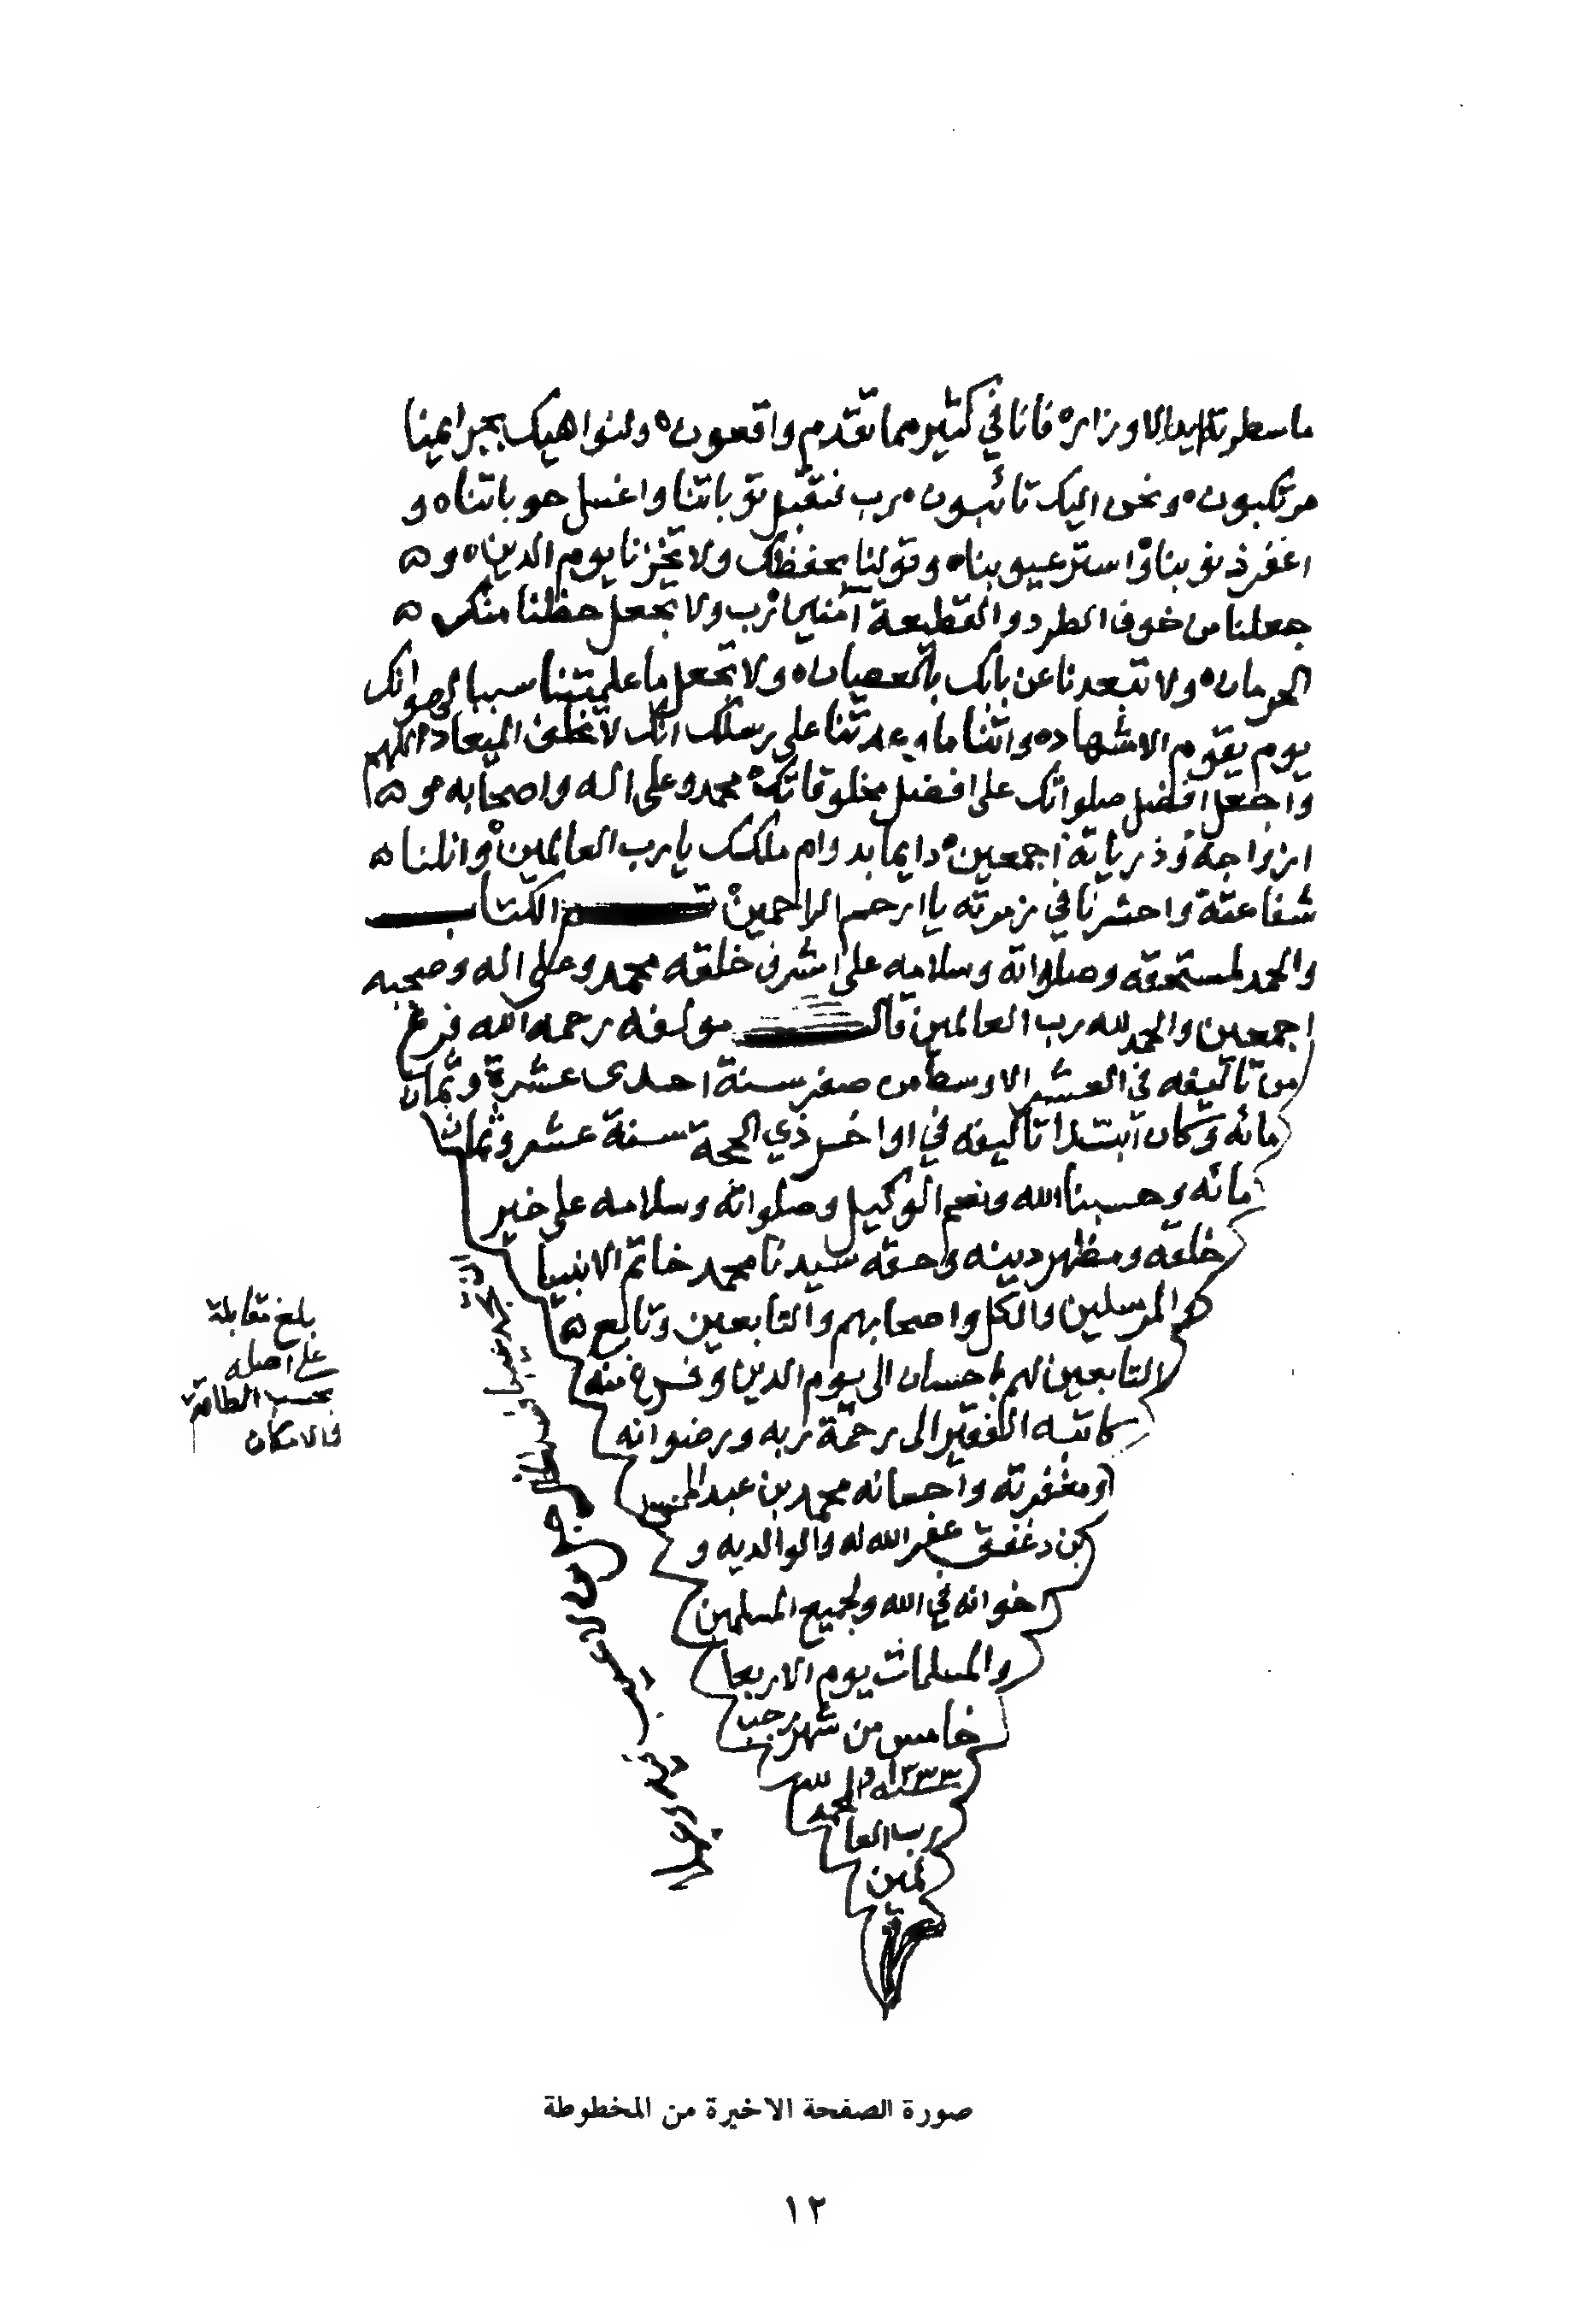 ما سطرته ايدي الاوزاره فانا في كثير مما تقدم واقعون ه ولنواهيك بجرايمنا
مرتكبون ه ونحن اليك تائبون ه رب فتقبل توباتنا واغسل حوباتنا ه و
اغفر ذنوبنا ه واستر عيوبنا ه وتولنا بحفظك ولا تخزنا يوم الدين ه و ه
جعلنا من خوف الطرد والقطيعة آمنين ه رب ولا تجعل حظنا منك ه
الحرمان ه ولا تبعدنا عن بابك بالعصيان ه ولا تجعل ما علمتنا سببا لهوانك
يوم يقوم الاشهاد ه واتنا ما وعدتنا على رسلك انك لا تخلف الميعاد اللهم
واجعل افضل صلواتك على افضل مخلوقاتك ه محمد وعلى اله واصحابه و ه
ازواجه وذرياته اجمعين ه دايما بدوام ملكك يا رب العالمين ه وانلنا ه
شفاعته واحشرنا في زمرته يا ارحم الراحمين ه تم الكتاب
والحمد لمستحقه وصلواته وسلامه على اشرف خلقه محمد وعلى اله وصحبه
اجمعين والحمد لله رب العالمين قال مولفه رحمه الله فرغ
من تاليفه في العشر الاوسط من صفر سنة احدى عشرة وثمان
مائه وكان ابتدا تاليفه في اواخر ذي الحجة سنة عشر وثمان
مائه وحسبنا الله ونعم الوكيل وصلواته وسلامه على خير
خلقه ومظهر دينه وحقه سيدنا محمد خاتم الانبيا
والمرسلين وال كل واصحابهم والتابعين وتابع ه
التابعين لهم باحسان الى يوم الدين وفرغ منه
كاتبه الفقير الى رحمة ربه ورضوانه
ومغفرته واحسانه محمد بن عبد المحسن
بن دغفق غفر الله له ولوالديه و
اخوانه في الله ولجميع المسلمين
والمسلمات يوم الاربعا
خامس من شهر رجب
سنة ١٢٣٣ والحمد لله
رب العا
لمين
بلغ مقابلة
على اصله
بحسب الطاقة
والامكان
صورة الصفحة الاخيرة من المخطوطة
١٢